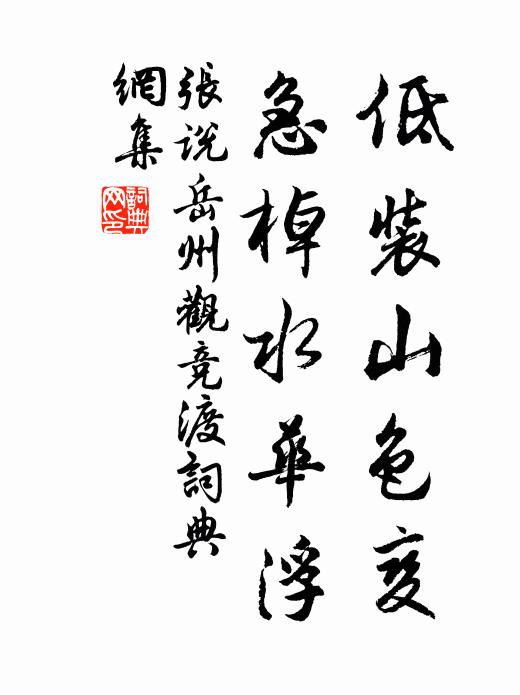 低裝山色变
急棹水華浮
張説岳州觀竞渡詞典
網集
詞典
网印